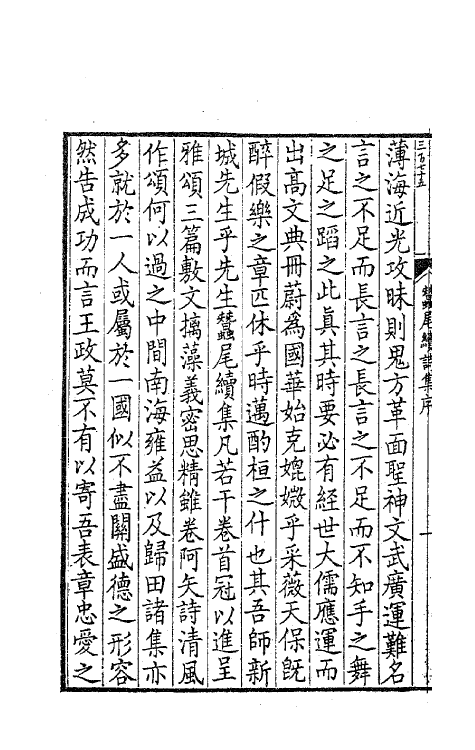 三百七十五
蠶尾續詩集序
一
薄海近光攻昧則鬼方革面聖神文武廣運難名
言之不足而長言之長言之不足而不知手之舞
之足之蹈之此真其時要必有経世大儒應運而
出高文典冊蔚為國華始克媲媺乎采薇天保旣
醉假樂之章匹休乎時邁酌桓之什也其吾師新
城先生乎先生蠶尾續集凡若干卷首冠以進呈
雅頌三篇敷文摛藻義密思精雖卷阿矢詩清風
作頌何以過之中間南海雍益以及歸田諸集亦
多就於一人或屬於一國似不盡關盛德之形容
然告成功而言王政莫不有以寄吾表章忠愛之